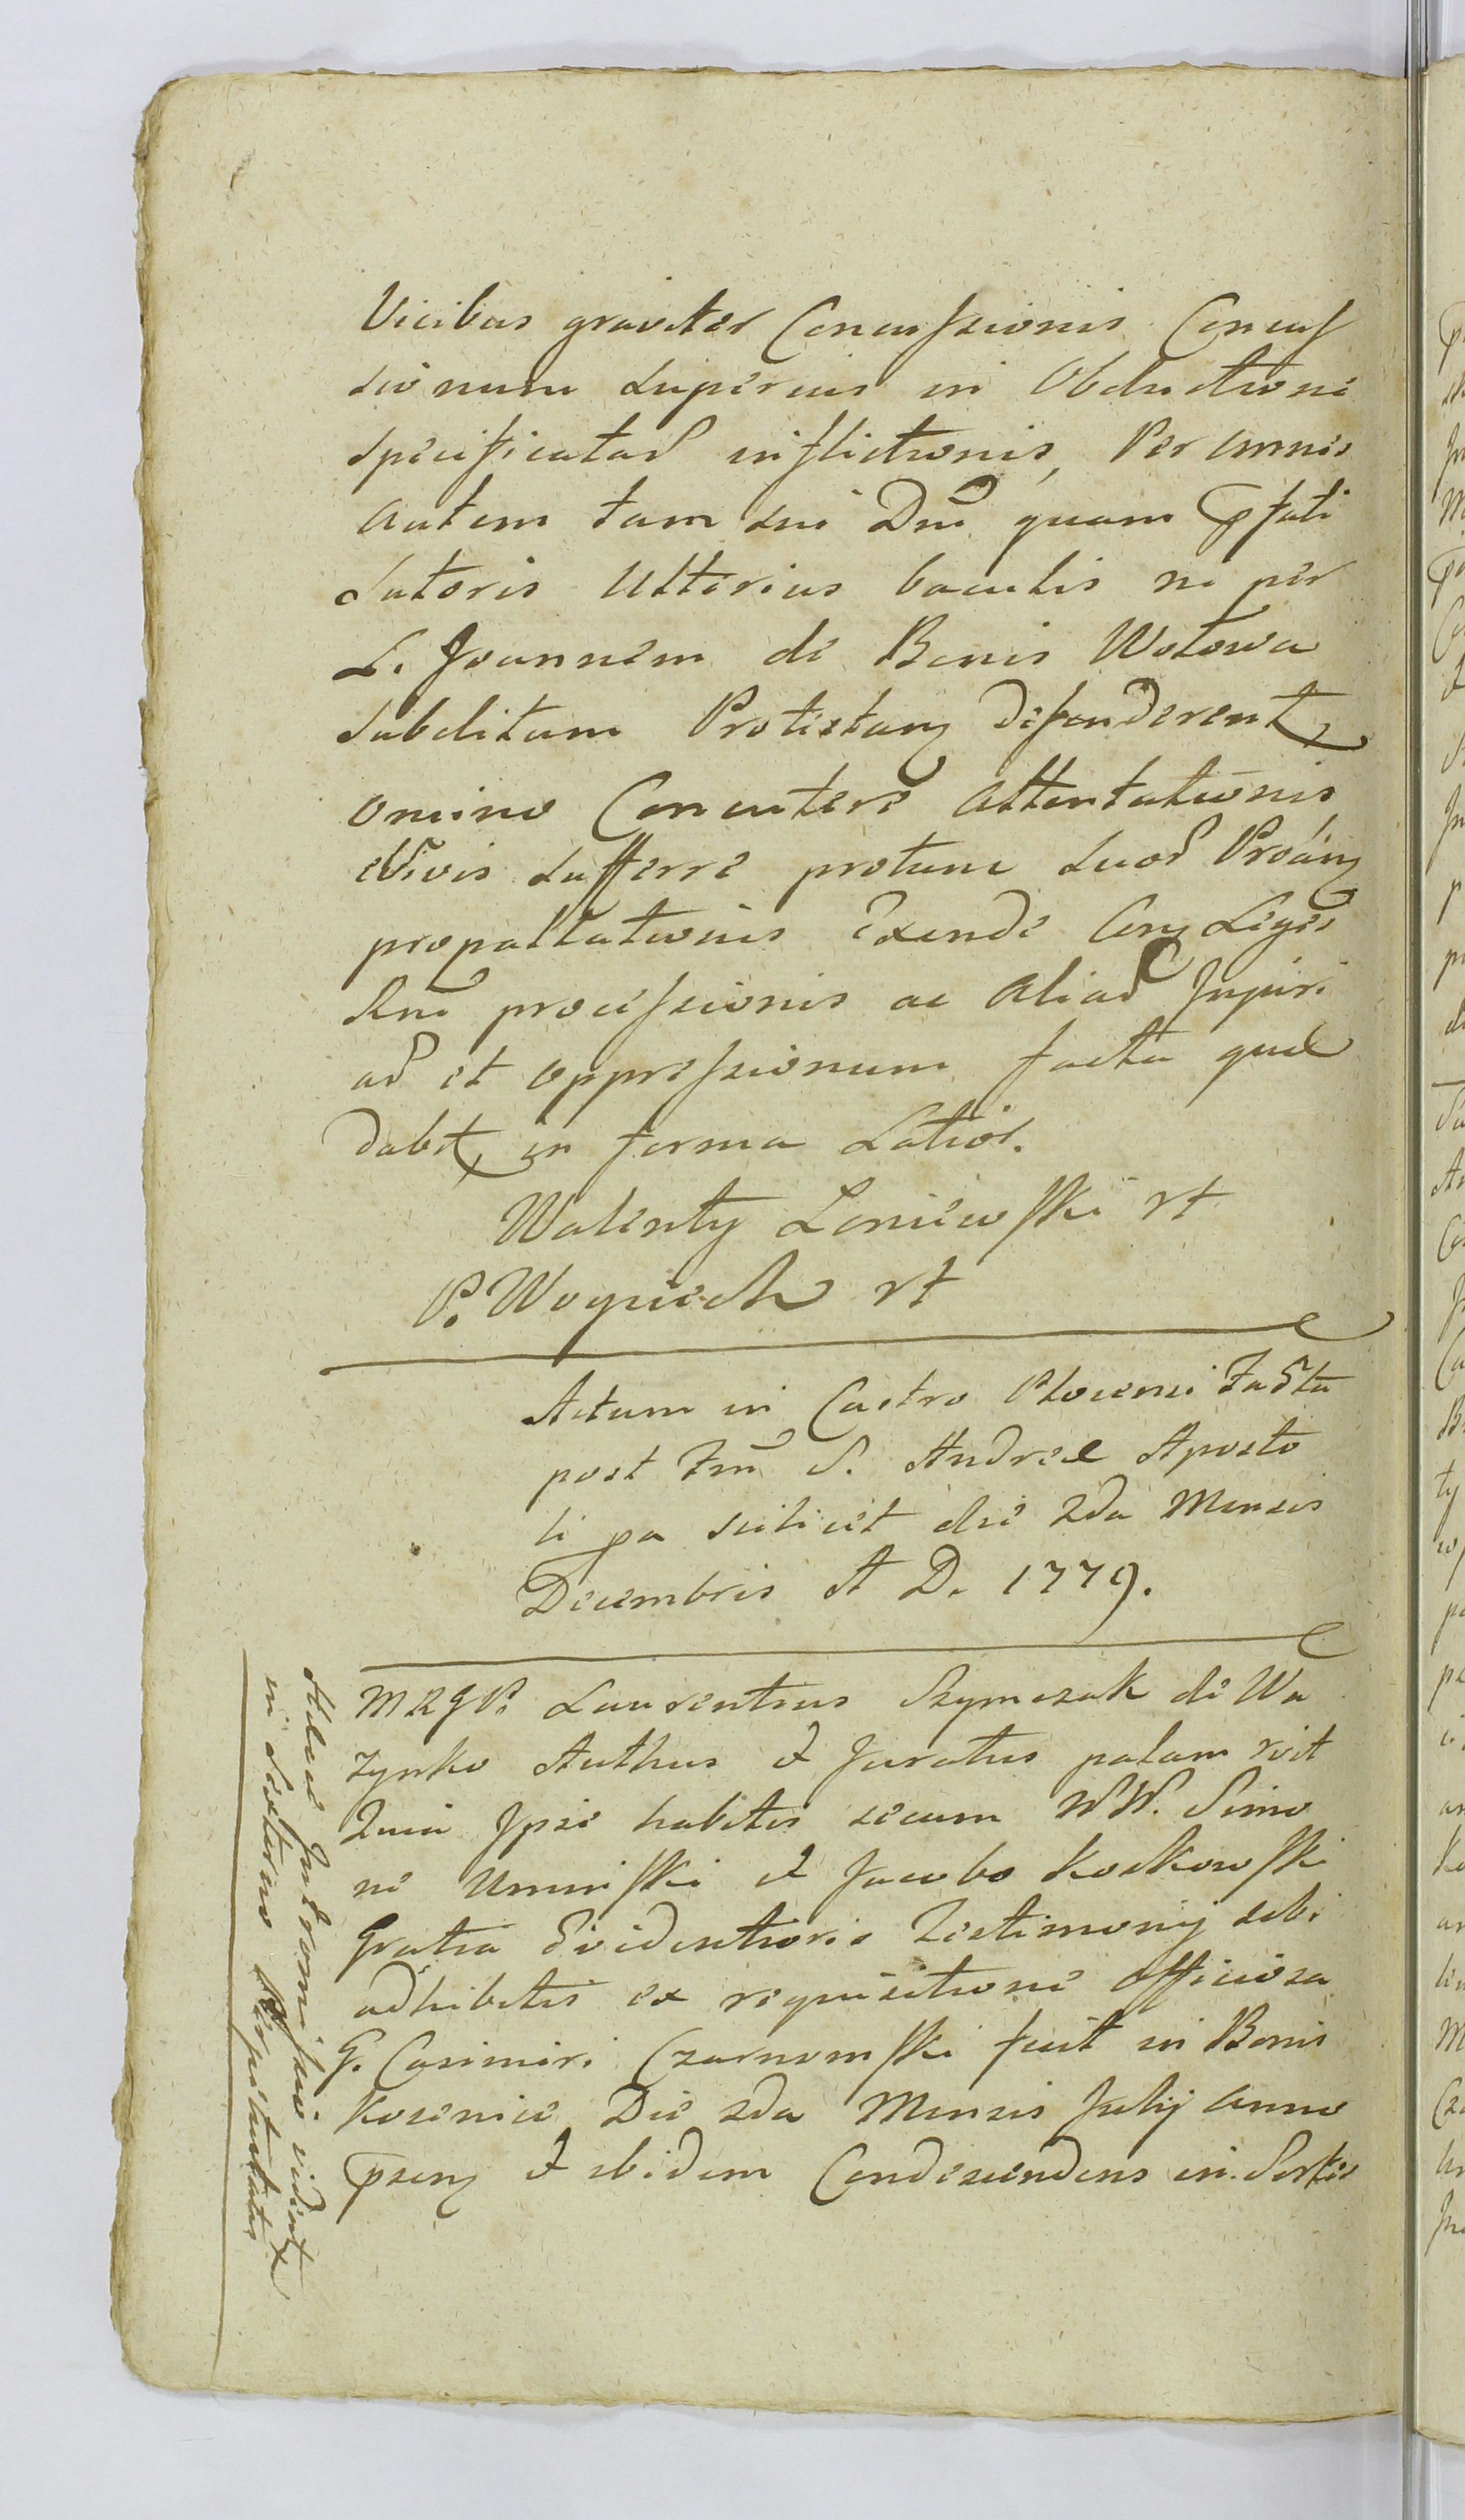 Vicibus graviter Concussionis Concus
sionum superius in Obductione
specificatar inflictionis, Per Omnes
autem tam sui Dni quam pfati
Sutoris Ulterius baculis ni per
L. Joannem de Bonis Wotowa
subditum Protestans defenderent
omnino Concutere Attentationis
eVivis sufferre protunc suor Proam
propallationis Exinde Cons Leges
Rni processionis ac Aliar Injuri
ar et oppressionum facta quae
dabt in forma Latior.
Walenty Loniewski rt
P. Woyciech rt
Actum in Castro Plocensi Fa 5ta
post Fm S. Andreae Aposto
li pa scilicet die 2da Mensis
Decembris A D. 1779.
MRGP. Laurentius Szymczak de Wa
zynko Authus et Juratus palam rvit
Quia Ipse habitis secum NN. Simo
ne Uminski et Jacobo Koskowski
Gratia Evidentioris Testimonij sibi
adhibitis ex requisitione Officiosa
G. Casimiri Czarnomski fuit in Bonis
Kosenice Die 2da Mensis Julij Anno
psens et ibidem Condescendens in Sortes
Intromissio
in